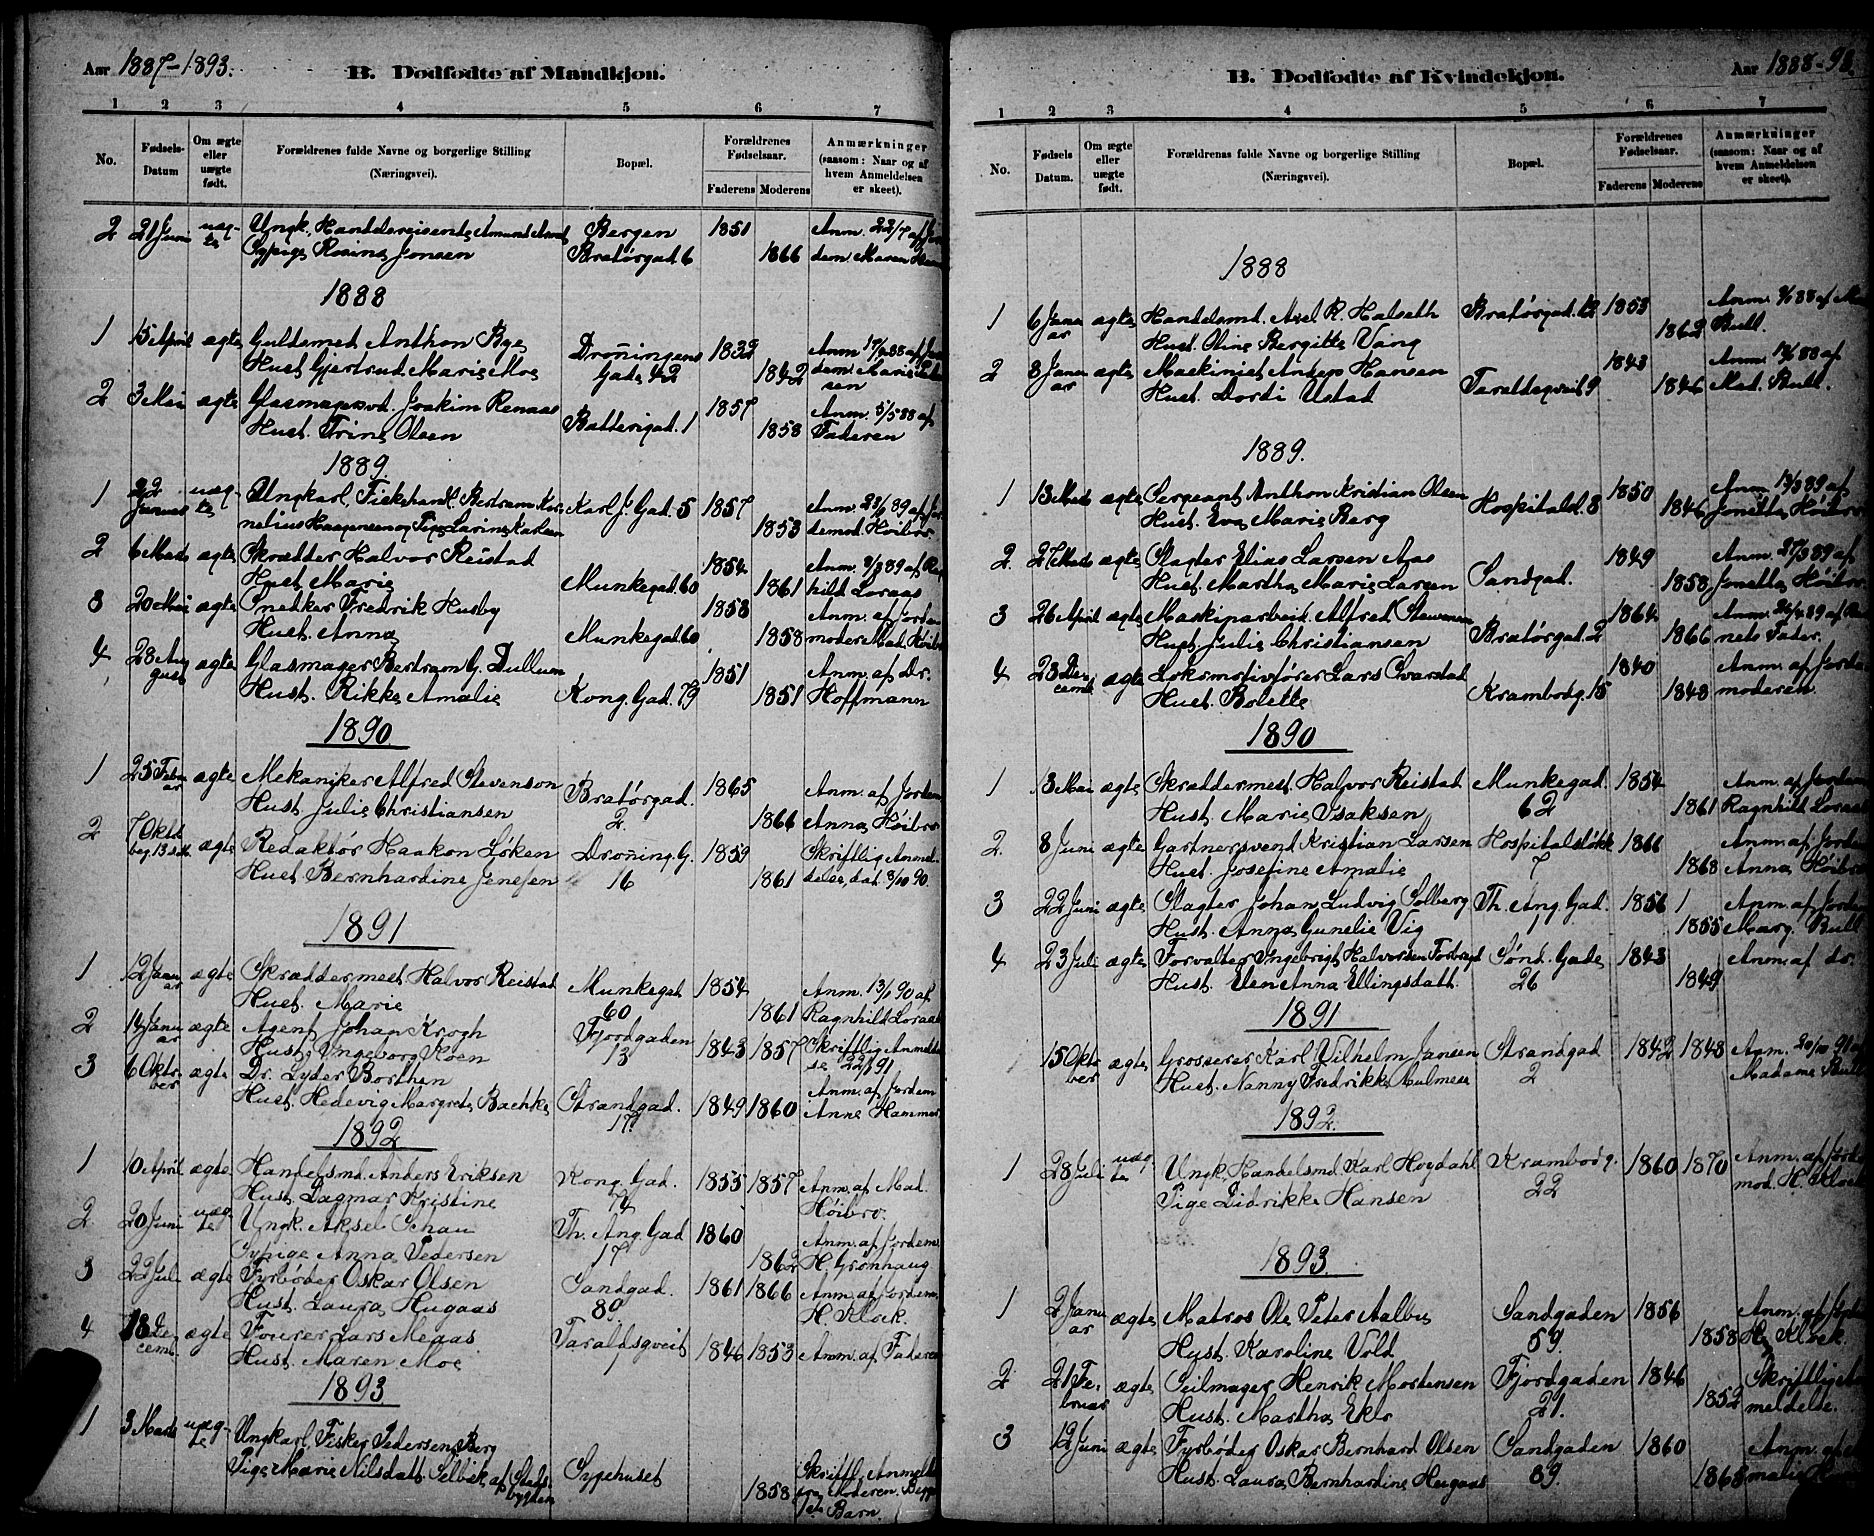 Aar 1887-1893.
B. Dødfødte af Mandkjøn.
1 2 3 4 5 6 7
No.
Fødsels-Datum
Om ægte eller uægte født.
Forældrenes fulde Navne og borgerlige Stilling (Næringsvei).
Bopæl.
Forældrenes Fødselsaar.
Faderens Moderens
Anmærkninger (saasom: Naar og af hvem Anmeldelsen er skeet).
2 21 Juni uæg- Ungk. Handelsreisende Amund Bergen 1851 Anm. 22/7 af
te Sypige Rosine Jonsen Bratørgad 6 1866 dem. Maren
1888
1 15 April ægte Guldsmed Anthon Bye Droningens 1832 Anm 17/4 88 af
Hust Gjertrud Marie Moe Gade 42 1842 dem. Marie
sen
2 3 Mai ægte Glasmagersvd. Joakim Renaas Batterigad. 1 1857 Anm. 5/5 88 af
Hust. Trine Olsen 1858 Faderen
1889.
1 22 Januar uæg- Ungkarl, Fiskehandl. Bertram Kor Karl J. Gad. 5 1857 Anm. 23/1 89 af
te nelius Haagensen og Pige Larine Karlsen 1853 demod. Høibro
2 6 Marts ægte Skrædder Halvor Reistad 1854 Anm. 8/3 89 af
Hust Marie Munkegad 60 1861 hild Loraas
3 20 Mai ægte Snedker Fredrik Husby 1858 Anm. af Jordem
Hust. Anna Munkegad 60 1858 moder Mad. Høibro
4 28 Aug ægte Glasmager Bertram G. Dullum 1851 Anm. af Dr.
gust Hust. Rikke Amalie Kong. Gad. 79 1851 Hoffmann
1890
1 25 Febru ægte Mekaniker Alfred Stevenson Bratørgad. 1865 Anm. af Jordem
ar Hust. Julie Christiansen 2. 1866 Anna Høibro
2 7 Oktb ægte Redaktør Haakon Løken Droning. G. 1859 Skriftlig Anmel-
beg. 13 Hust Bernhardine Jenssen 16 1861 delse, dat. 8/10 90.
1891
1 12 Janu ægte Skræddermest Halvor Reistad Munkegat 1854 Anm. 13/1 90 af
ar Hust. Marie 60 1861 Ragnhild Loraas
2 14 Janu ægte Agent Johan Krogh Fjordgaden 1843 1857 Skriftlig Anmeldel
ar Hust. Ingeborg Koen 13 se 22/1 91
3 6 Okto ægte Dr. Lyder Borthen Anm. af Jordem
ber Hust. Hedevig Margrete Bachke Strandgad. 17. 1849 1860 Anne Hammer
1892
1 10 April ægte Handelsmd. Anders Eriksen Kong. Gad. 1855 1857 Anm. af Mad.
Hust. Dagmar Kristine Høibro.
2 20 Juni uæg Ungk. Aksel Schau Th. Ang. Gad 1860 Anm. af Jordem.
te Sypige Anna Pedersen 17 1862 H. Grønhaug
3 22 Juli ægte Fyrbøder Oskar Olsen Sandgad. 1861 1866 Anm. af Jordem.
Hust. Laura Hugaas 89 H. Kloek.
4 18 De ægte Fourer Lars Meaas Taraldsgveit 1846 1853 Anm. af Faderen
cemb. Hust. Maren Moe 1
1893
1 3 Marts uæg- Ungkarl Fisker Pedersen Berg
te Pige Marie Nilsdatt. Selbæk af Stads- Sygehuset 1858 Skriftl. Anmeld
bygden fra Moderen. Begges
1ste Barn.
B. Dødfødte af Kvindekjøn.
Aar 1888-93.
1 2 3 4 5 6 7
No.
Fødsels Datum.
Om ægte eller uægte født.
Forældrenas fulde Navne og borgerlige Stilling (Næringsvei).
Bopæl.
Forældrenes Fødselsaar.
Faderens Moderens
Anmærkninger (saasom: Naar og af hvem Anmeldelsen er skeet).
1888
1 6 Janu ægte Handelsmd. Axel R. Halseth Bratørgad. 12 1853 Anm. 88 af
ar Hust. Oline Bergitte Vang 1862 Bull.
2 8 Janu ægte Maskinist Anders Hansen Taraldsgveit 9 1843 Anm. 88 af
ar Hust. Dordi Ustad 1846 Mad. Bull.
1889.
1 13 Marts ægte Sergeant Anthon Kristian Olsen Hospitalsl. 8 1850 Anm. 13/3 89 af
Hust. Eva Marie Berg 1846 Jonetta Høibro
2. 27 Marts ægte Slagter Elias Larsen Aas Sandgad. 1849 Anm. 27/3 89 af
Hust. Martha Marie Larsen 1858 Jonetta Høibro
3 26 April ægte Maskinarbeid. Alfred Stevensen Bratørgad. 2 1864 Anm. 26/4 89 af Bar
Hust Julie Christiansen 1866 nets Fader.
4 23 De ægte Lokomotivfører Lars Ovarstad 1840 Anm. af Jorde
cemb Hust. Bolette Krambodg. 15 1848 moderen.
1890
1 13 Mai ægte Skræddermest. Halvor Reistad Munkegad. 1854 Anm. af Jordem
Hust. Marie Isaksen 62 1861 Ragnhild Loraas
2. 8 Juni ægte Gartnersvend Kristian Larsen Hospitalsløkk 1866 Anm. af Jordem
Hust. Josefine Amalie 7 1868 Anna Høibro
3 22 Juni ægte Slagter Johan Ludvig Solberg Th. Ang. Gad. 1856 Anm. af Jordem
Hust. Anna Gunelie Vig 1 1855 Marg. Bull
4 23 Juli ægte Forvalter Ingebrigt Halvorsen Forbregd Sønd. Gade 1843 Anm. af Dr.
Hust. Elen Anna Ellingsdatt. 26 1849
1891
15 Okto ægte Grosserer Karl Vilhelm Jansen Strandgad 1842 1848 Anm. 20/10 91 af
ber Hust. Nanny Fredrikke Hulmese 2 Madame Bull
1892.
1 28 Juli uæg Ungk. Handelsmd. Karl Høydahl Krambodg. 1860 1870 Anm. af Jorde
te Pige Didrikke Hansen 22 mod. H. Kloek
1893.
1 2 Janu ægte Matros Ole Peter Aalbu Sandgaden 1856 Anm. af Jordem
ar Hust. Karoline Vold 59. 1858 H. Kloek.
2 21 Fe- ægte Seilmager Henrik Mortensen Fjordgaden 1846 Skriftlig An
bruar Hust. Martha Eklo 21. 1852 meldelse.
3 12 Juni ægte Fyrbøder Oskar Bernhard Olsen Sandgaden 1860 Anm. af
Hust. Laura Bernhardine Hugaas 89. 1868